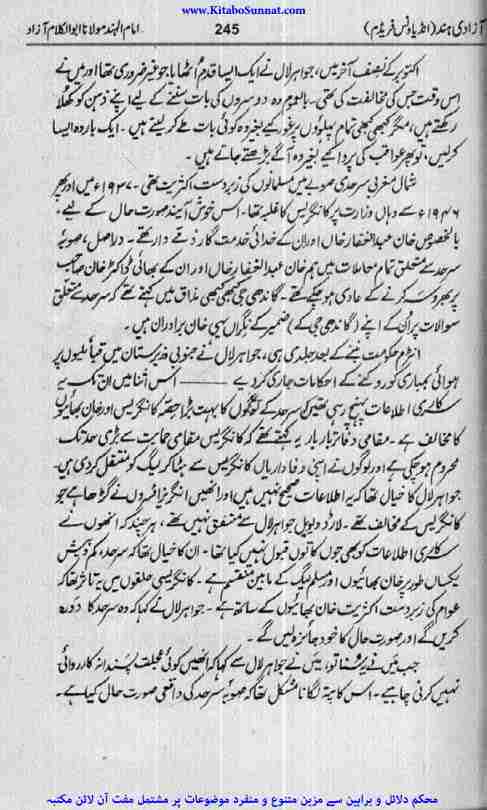 www.KitaboSunnat.com
آزادی ہند (انڈیا ونس فریڈم) 245 امام الہند مولانا ابوالکلام آزاد
اکتوبر کے نصف آخر میں، جواہر لال نے ایک ایسا قدم اُٹھایا جو غیر ضروری تھا اور میں نے
اس وقت جس کی مخالفت کی تھی۔ بالعموم وہ دوسروں کی بات سننے کے لیے اپنے ذہن کو کھُلا
رکھتے ہیں، مگر کبھی کبھی تمام پہلوؤں پر غور کیے بغیر وہ کوئی بات طے کر لیتے ہیں۔ ایک بار وہ ایسا
کر لیں، تو پھر عواقب کی پروا کیے بغیر وہ آگے بڑھتے جاتے ہیں۔
شمال مغربی سرحدی صوبے میں مسلمانوں کی زبردست اکثریت تھی۔ ۱۹۳۷ء میں اور پھر
۱۹۴۶ء سے وہاں وزارت پر کانگریس کا غلبہ تھا۔ اس خوش آیند صورت حال کے لیے،
بالخصوص خان عبدالغفار خاں اور ان کے خدائی خدمت گار ذمے دار تھے۔ دراصل، صوبۂ
سرحد سے متعلق تمام معاملات میں ہم خان عبدالغفار خاں اور ان کے بھائی ڈاکٹر خان صاحب
پر بھروسہ کرنے کے عادی ہو چکے تھے۔ گاندھی جی کبھی کبھی مذاق میں کہتے تھے کہ سرحد سے متعلق
سوالات پر اُن کے اپنے (گاندھی جی کے) ضمیر کے نگراں یہی خان برادران ہیں۔
انٹرم حکومت بننے کے بعد جلد ہی، جواہر لال نے جنوبی وزیرستان میں قبائلیوں پر
ہوائی بمباری کو روکنے کے احکامات جاری کر دیے ——— اس اثنا میں ان تک یہ
سرکاری اطلاعات پہنچ رہی تھیں کہ سرحد کے لوگوں کا بہت بڑا حصّہ کانگریس اور خان بھائیوں
کا مخالف ہے۔ مقامی دفاتر بار بار یہ کہتے تھے کہ کانگریس مقامی حمایت سے بڑی حد تک
محروم ہو چکی ہے اور لوگوں نے اپنی وفاداریاں کانگریس سے ہٹا کر لیگ کو منتقل کر دی ہیں۔
جواہر لال کا خیال تھا کہ یہ اطلاعات صحیح نہیں ہیں اور انھیں انگریز افسروں نے گڑھا ہے جو
کانگریس کے مخالف تھے۔ لارڈ ویویل جواہر لال سے متفق نہیں تھے، ہر چند کہ انھوں نے
سرکاری اطلاعات کو بھی جوں کا توں قبول نہیں کیا تھا۔ ان کا خیال تھا کہ سرحد، کم و بیش
یکساں طور پر خان بھائیوں اور مسلم لیگ کے مابین منقسم ہے۔ کانگریسی حلقوں میں یہ تاثر تھا کہ
عوام کی زبردست اکثریت خان بھائیوں کے ساتھ ہے۔ جواہر لال نے کہا کہ وہ سرحد کا دَورہ
کریں گے اور صورت حال کا خود جائزہ لیں گے۔
جب میں نے یہ سُنا تو، میں نے جواہر لال سے کہا کہ انھیں کوئی عجلت پسندانہ کارروائی
نہیں کرنی چاہیے۔ اس کا پتہ لگانا مشکل تھا کہ صوبۂ سرحد کی واقعی صورت حال کیا ہے۔
محکم دلائل و براہین سے مزین متنوع و منفرد موضوعات پر مشتمل مفت آن لائن مکتبہ